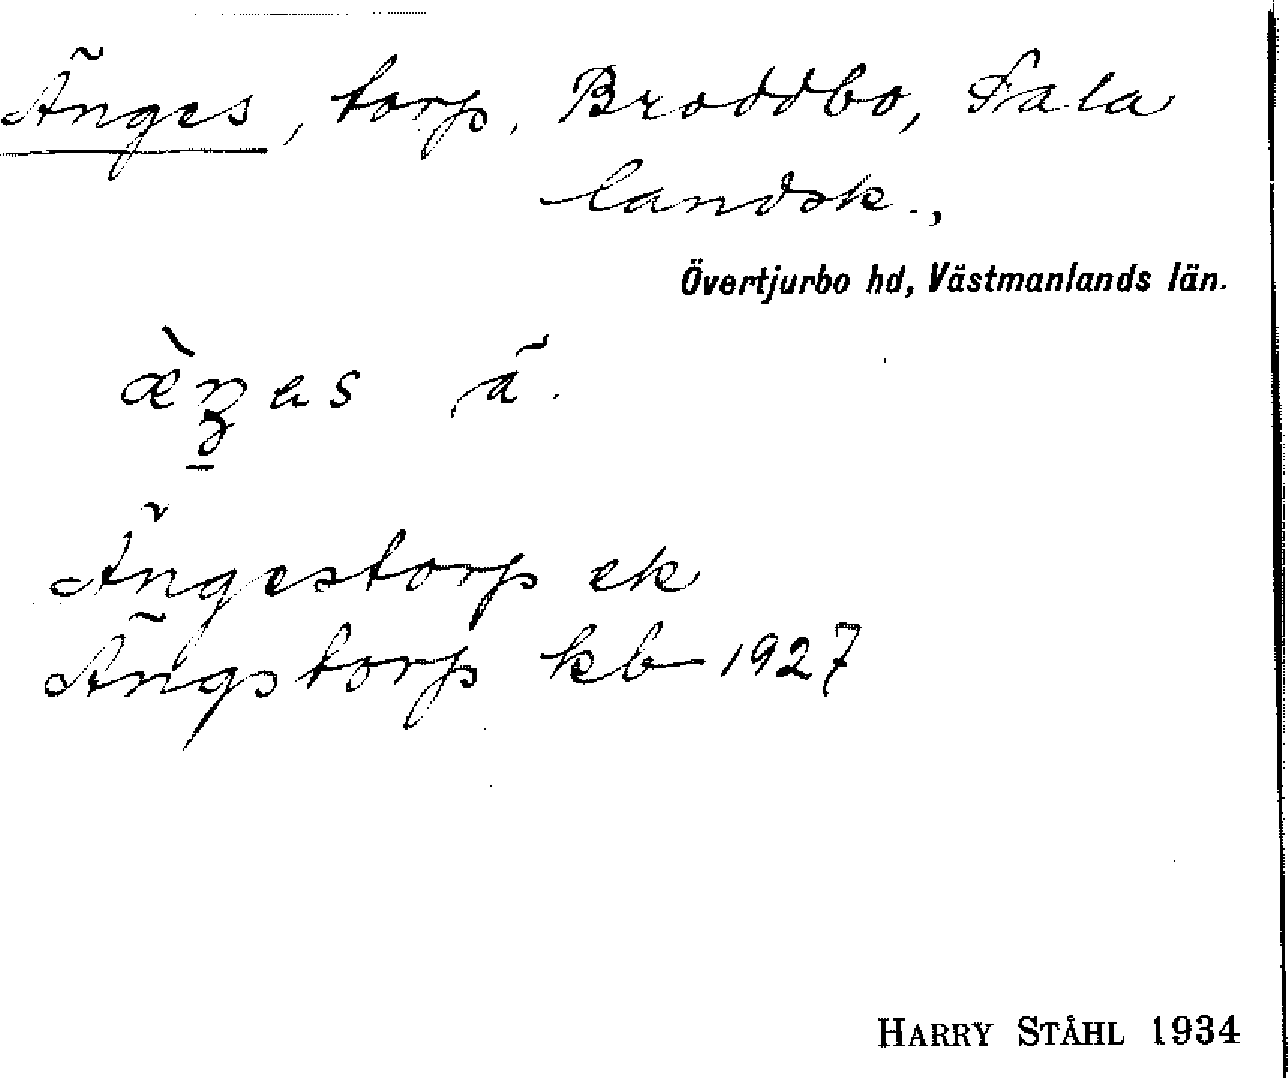 Änges, torp, Broddbo, Sala
landsk.,
Övertjurbo hd, Västmanlands län.
ä̀ŋas ä.
Ängestorp ek
Ängstorp kb 1927
HARRY STÅHL 1934